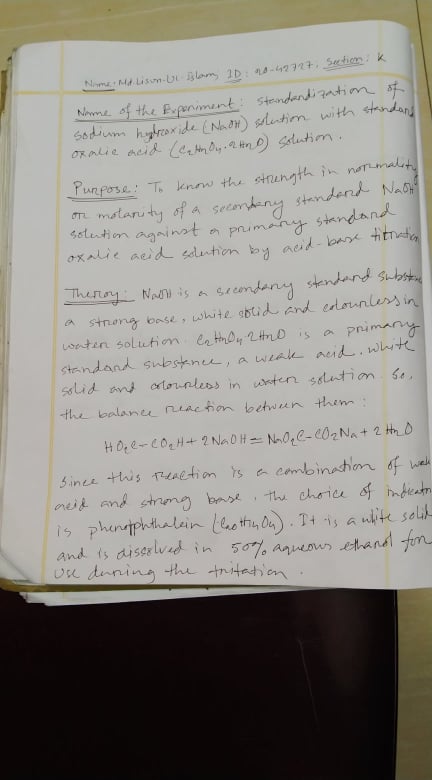 Name: Md. Lisun-Ul-Islam, ID: 20-42727, Section: K
Name of the Experiment: Standardization of
Sodium hydroxide (NaOH) solution with standard
oxalic acid (C2H2O4.2H2O) solution.
Purpose: To know the strength in normality
or molarity of a secondary standard NaOH
solution against a primary standard
oxalic acid solution by acid-base titration
Theroy: NaOH is a secondary standard substance
a strong base, white solid and colourless in
water solution. C2H2O4.2H2O is a primary
standard substance, a weak acid, white
solid and colourless in water solution. So,
the balance reaction between them:
HO2C-CO2H + 2NaOH = NaO2C-CO2Na + 2H2O
Since this reaction is a combination of weak
acid and strong base, the choice of indicator
is phenopphthalein (C20H14O4). It is a white solid
and is dissolved in 50% aqueous ethanol for
use during the tritation.